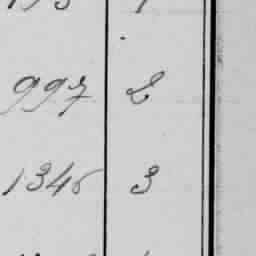 997 2
1345 3